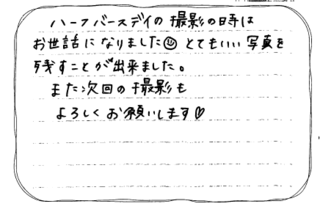 ハーフバースデイの撮影の時は
お世話になりました☺とてもいい写真を
残すことが出来ました。
また次回の撮影も
よろしくお願いします♡